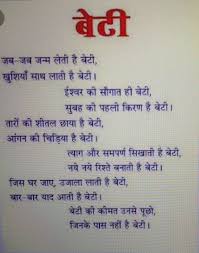 बेटी
जब-जब जन्म लेती है बेटी,
खुशियाँ साथ लाती है बेटी।
ईश्वर की सौगात ही बेटी,
सुबह की पहली किरण है बेटी।
तारों की शीतल छाया है बेटी,
आंगन की चिड़िया है बेटी।
त्याग और समर्पण सिखाती है बेटी,
नये नये रिश्ते बनाती है बेटी।
जिस घर जाए, उजाला लाती है बेटी,
बार-बार याद आती है बेटी।
बेटी की कीमत उनसे पूछो,
जिनके पास नहीं है बेटी।